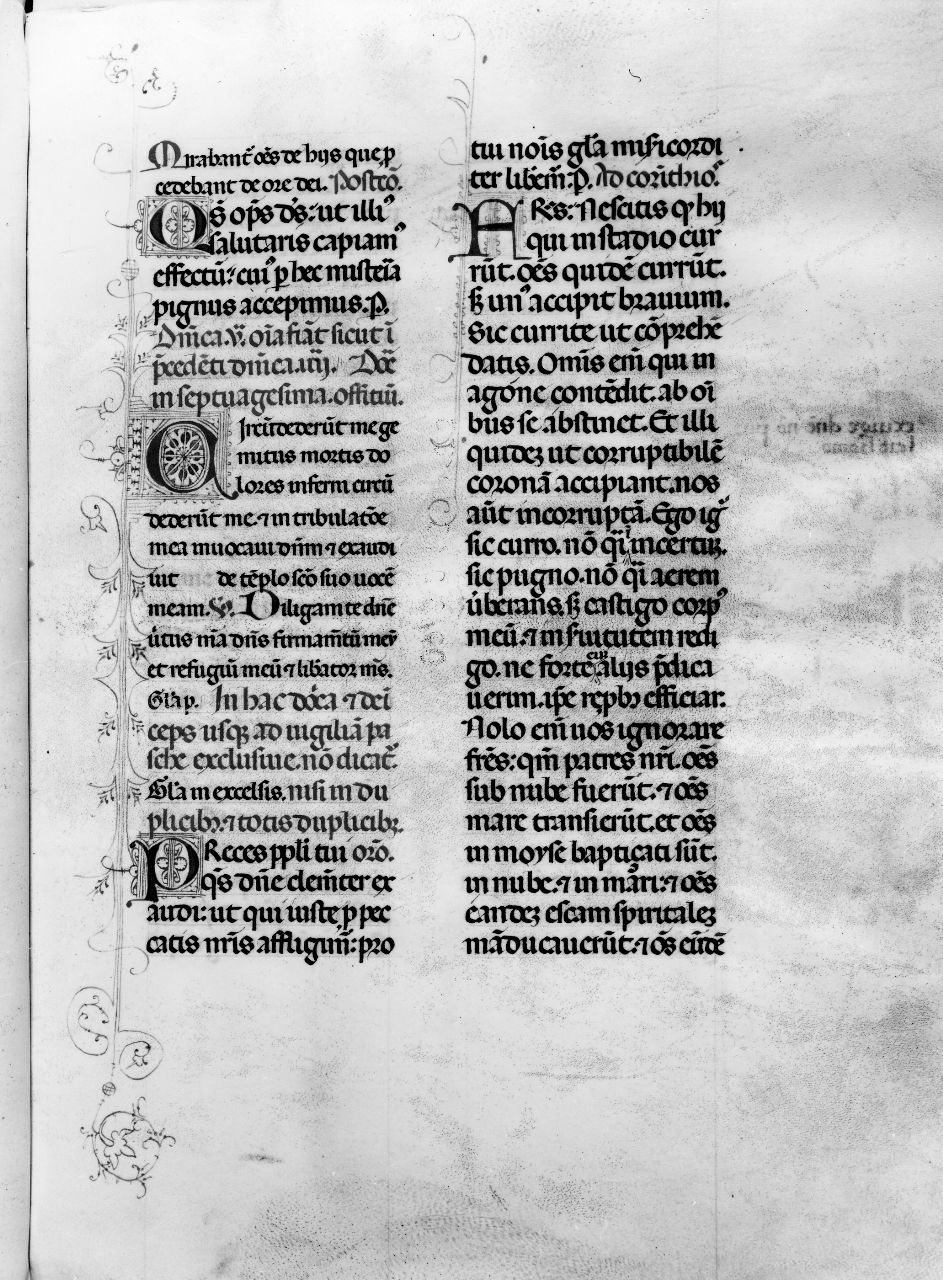 Mirabant̃ oẽs de hijs que ꝓ
cedebant de ore dei. Postcõ.
Qs̃ op̃s ds̃: ut illiꝰ
salutaris capiamꝰ
effectũ: cuiꝰ ꝑ hec misteria
pignus accepimus: P.
Dnĩca. v. oĩa fiãt sicut ĩ
p̃cedẽti dnĩca. iiij. Dõe
in septuagesima. offitiũ.
Circũdederũt me ge
mitus mortis do
lores inferni circũ
dederũt me. ⁊ in tribulatõe
mea inuocaui dñm ⁊ exaudi
uit de tẽplo scõ suo uocẽ
meam. V̄. Diligam te dñe
ũtus mã dñs firmam̃tũ meũ
et refugiũ meũ ⁊ libãtor ms̃.
Glã p. In hac dõca ⁊ deĩ
ceps usqꝫ ad uigiliã pa
sche exclusiue. nõ dicat̃.
Glã in excelsis. nisi in du
plicibꝫ. ⁊ totis duplicibꝫ.
Preces pp̃li tui orõ.
qs̃ dñe clem̃ter ex
audi: ut qui iuste ꝓ pec
catis nr̃is affligim̃: pro
tui noĩs glã misericordi
ter liberm̃: P. Ad corĩthioꝝ.
FRẽs: Nescitis qꝫ hij
qui in stadio cur
rũt. oẽs quidẽ currũt.
sꝫ unꝰ accipit brauium.
Sic currite ut cõprehẽ
datis. Omĩs em̃ qui in
agone contẽdit. ab oĩ
bus se abstinet. Et illi
quideꝫ ut corruptibilẽ
coronã accipiant. nos
aũt incorruptã. Ego igĩ
sic curro. nõ qĩ incertũ.
sic pugno. nõ qĩ aerem
ũberans. sꝫ castigo corpꝰ
meũ. ⁊ in seruitutem redi
go. ne forte cuȝ alijs p̃dica
uerim. ip̃e rep̃bꝰ efficiar.
Nolo em̃ uos ignorare
fr̃es: qm̃ patres nr̃i. oẽs
sub nube fuerũt. ⁊ oẽs
mare transierũt. et oẽs
in moyse baptiçati sũt.
in nube. ⁊ in mari: ⁊ oẽs
eandeꝫ escam spiritaleꝫ
mãducauerũt: ⁊ oẽs eũdẽ